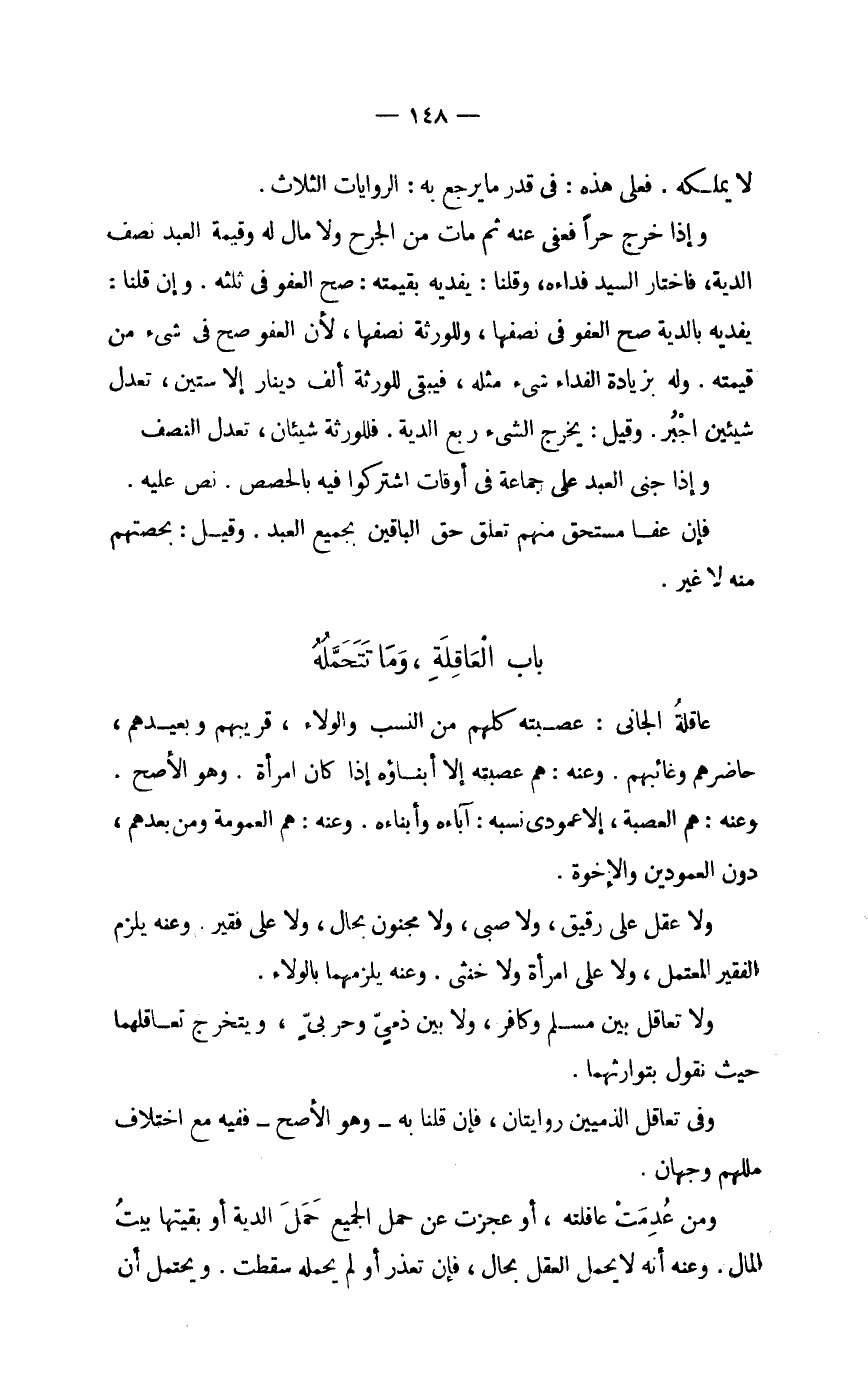 — ١٤٨ —
لا يملكه . فعلى هذه : فى قدر مايرجع به : الروايات الثلاث .
و إذا خرج حراً فعفى عنه ثم مات من الجرح ولا مال له وقيمة العبد نصف
الدية، فاختار السيد فداءه، وقلنا : يفديه بقيمته : صح العفو فى ثلثه . و إن قلنا :
يفديه بالدية صح العفو فى نصفها ، وللورثة نصفها ، لأن العفو صح فى شىء من
قيمته . وله بزيادة الفداء شىء مثله ، فيبقى للورثة ألف دينار إلا ستين ، تعدل
شيئين اجْبُر . وقيل : يخرج الشىء ربع الدية . فللورثة شيئان ، تعدل النصف
و إذا جنى العبد على جماعة فى أوقات اشتركوا فيه بالحصص . نص عليه .
فإن عفا مستحق منهم تعلق حق الباقين بجميع العبد . وقيل : بحصتهم
منه لا غير .
باب الْعَاقِلَةِ ، وَمَا تَتَحَمَّلُهُ
عاقلةُ الجانى : عصبته كلهم من النسب والولاء ، قريبهم و بعيدهم ،
حاضرهم وغائبهم . وعنه : هم عصبته إلا أبناؤه إذا كان امرأة . وهو الأصح .
وعنه : هم العصبة ، إلا عمودى نسبه : آباءه وأبناءه . وعنه : هم العمومة ومن بعدهم ،
دون العمودين والإخوة .
ولا عقل على رقيق ، ولا صبى ، ولا مجنون بحال ، ولا على فقير . وعنه يلزم
الفقير المعتمل ، ولا على امرأة ولا خنثى . وعنه يلزمهما بالولاء .
ولا تعاقل بين مسلم وكافر ، ولا بين ذمىّ وحربىّ ، و يتخرج تعاقلهما
حيث نقول بتوارثهما .
وفى تعاقل الذميين روايتان ، فإن قلنا به ـ وهو الأصح ـ ففيه مع اختلاف
مللهم وجهان .
ومن عُدِمَتْ عاقلته ، أو عجزت عن حمل الجميع حَمَلَ الدية أو بقيتها بيتُ
المال . وعنه أنه لايحمل العقل بحال ، فإن تعذر أو لم يحمله سقطت . و يحتمل أن